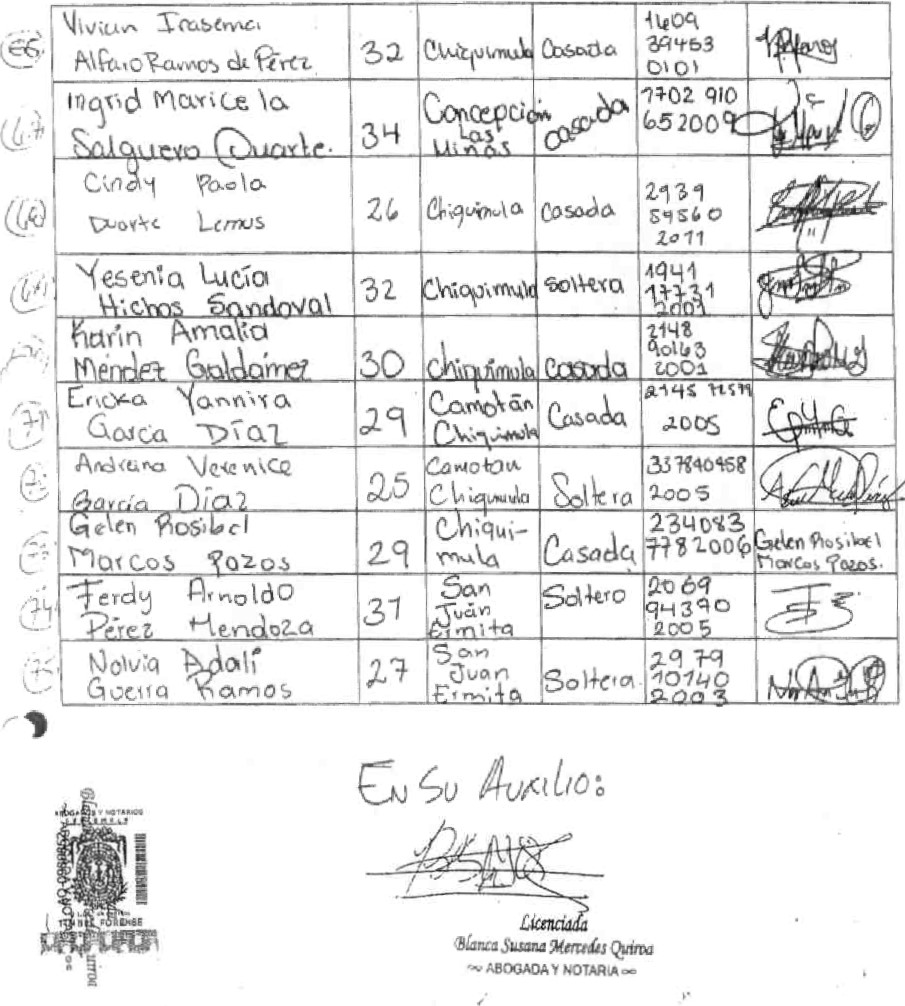 66 Vivian Irasema Alfaro Ramos de Pérez 32 Chiquimula Casada 1609 39453 0101
67 Ingrid Maricela Salguero Duarte. 34 Concepción Las Minas casada 1702 910 652009
68 Cindy Paola Duarte Lemus 26 Chiquimula Casada 2939 59560 2011
69 Yesenia Lucía Hichos Sandoval 32 Chiquimula Soltera 1941 17731 2001
Karin Amalia Méndez Galdámez 30 Chiquimula Casada 2148 90163 2001
71 Ericka Yannira García Díaz 29 Camotán Chiquimula Casada 2145 72579 2005
Andreina Verenice García Díaz 25 Camotan Chiquimula Soltera 337840458 2005
73 Gelen Rosibel Marcos Pozos 29 Chiqui-mula Casada 234083 7782006 Gelen Rosibel Marcos Pozos.
74 Ferdy Arnoldo Pérez Mendoza 31 San Juan Ermita Soltero 2069 94390 2005
75 Nolvia Adalí Guerra Ramos 27 San Juan Ermita Soltera. 2979 10140 2003
En su Auxilio:
ABOGADOS Y NOTARIOS
GUATEMALA
TIMBRE FORENSE
Licenciada
Blanca Susana Mercedes Quiroa
ABOGADA Y NOTARIA